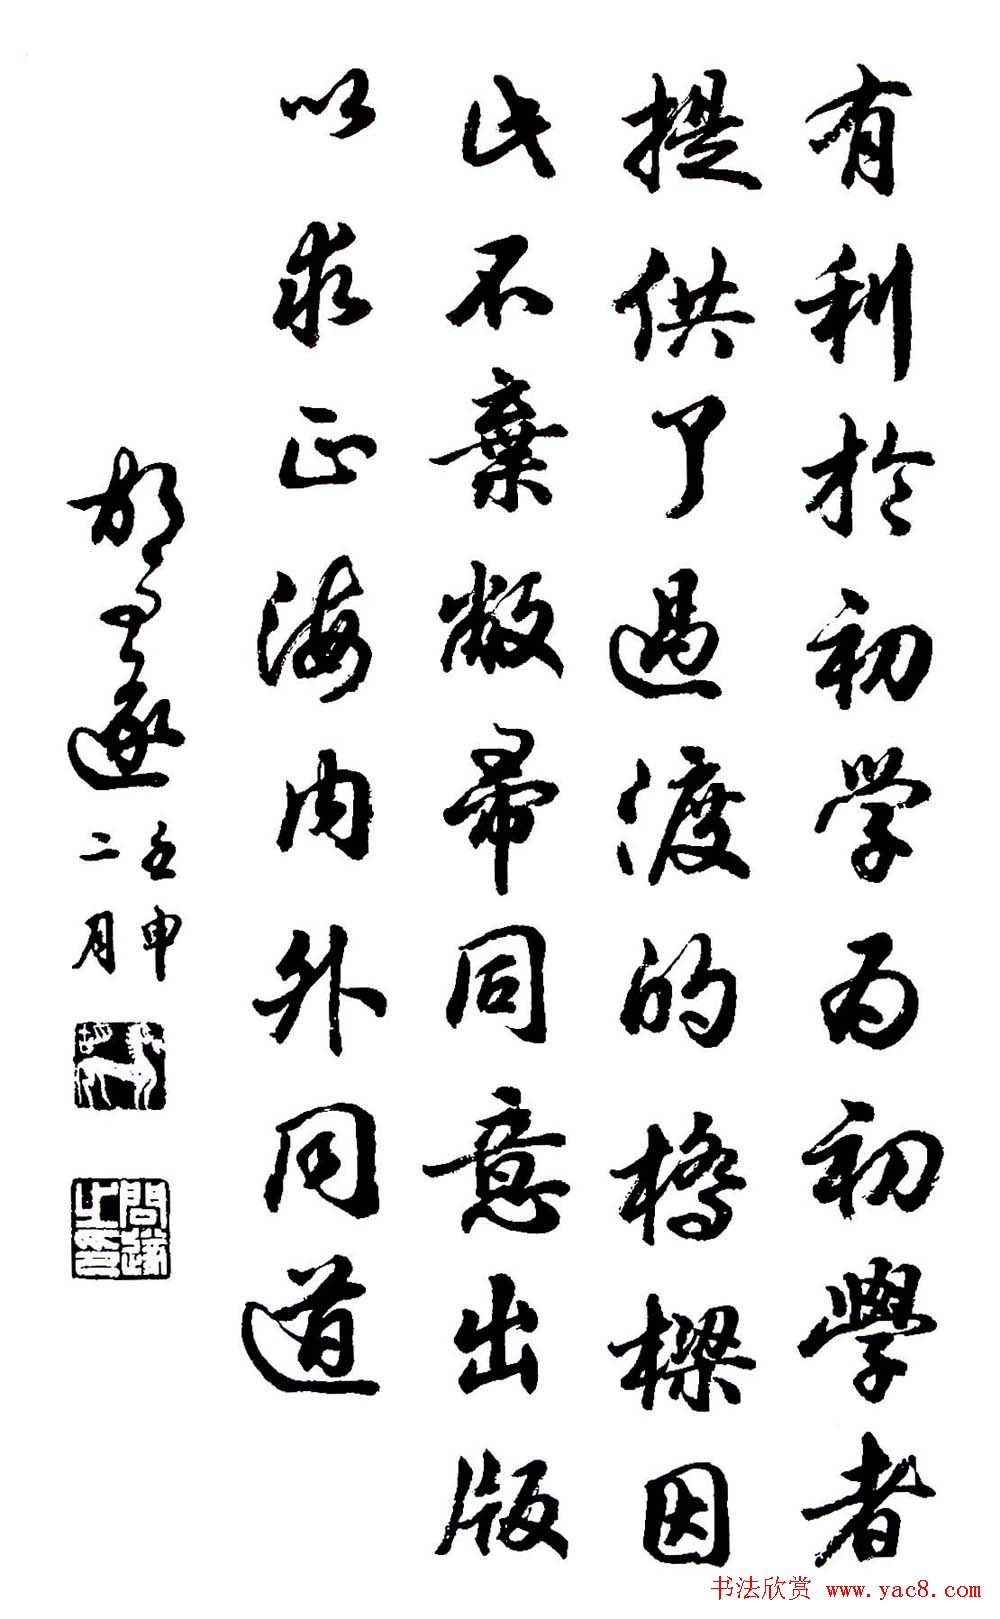 有利於初学为初學者
提供了過渡的橋樑因
此不棄敝帚同意出版
以求正海内外同道
胡問遂
壬申
二月
問遂
之印
书法欣赏 www.yac8.com